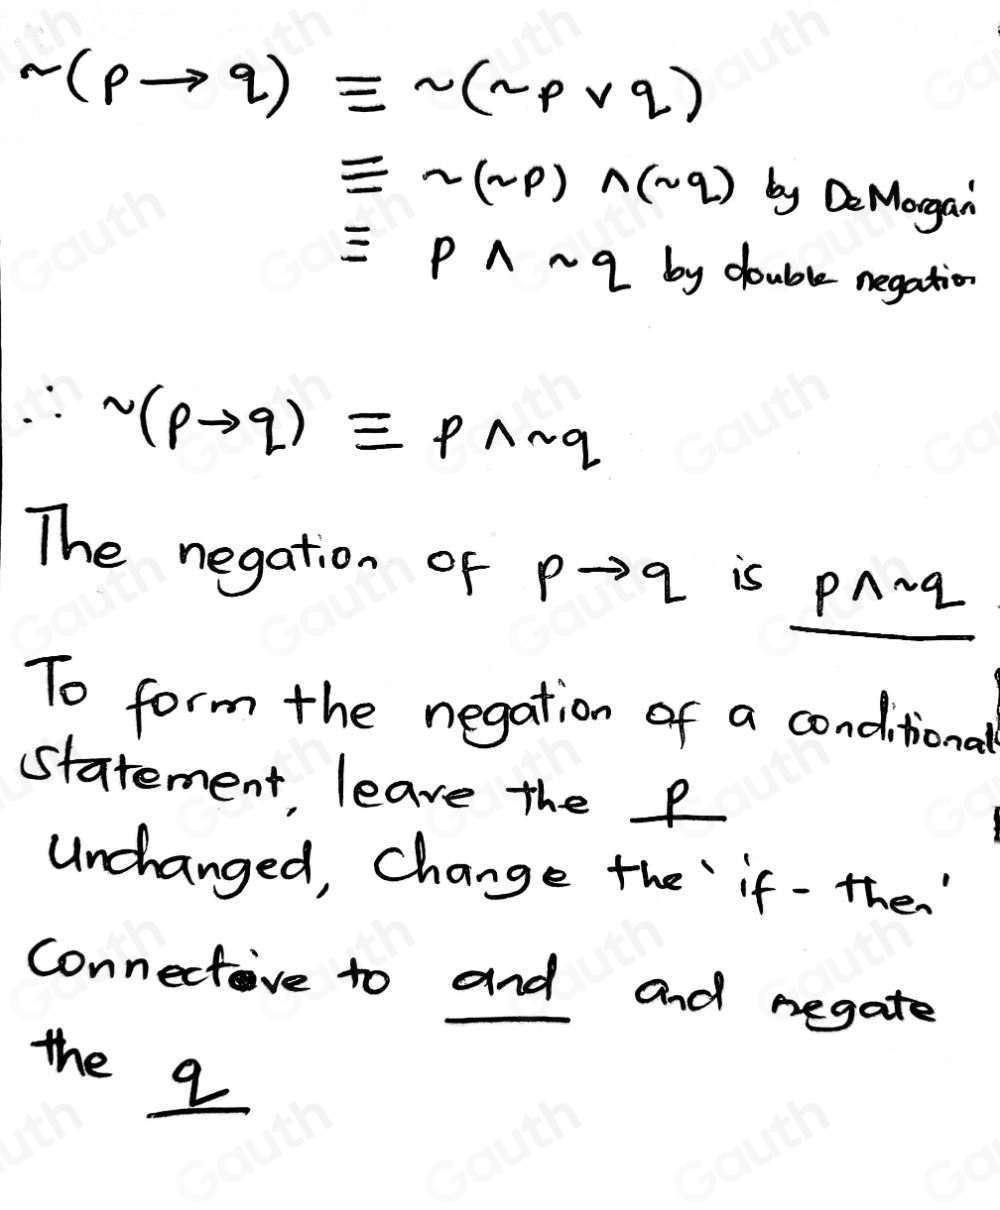 ~(p → q) ≡ ~(~p ∨ q)
≡ ~(~p) ∧ (~q) by DeMorgan's
≡ p ∧ ~q by double negation
∴ ~(p→q) ≡ p ∧ ~q
The negation of p→q is p∧~q
To form the negation of a conditional
statement, leave the p
unchanged, change the 'if - then'
connective to and and negate
the q